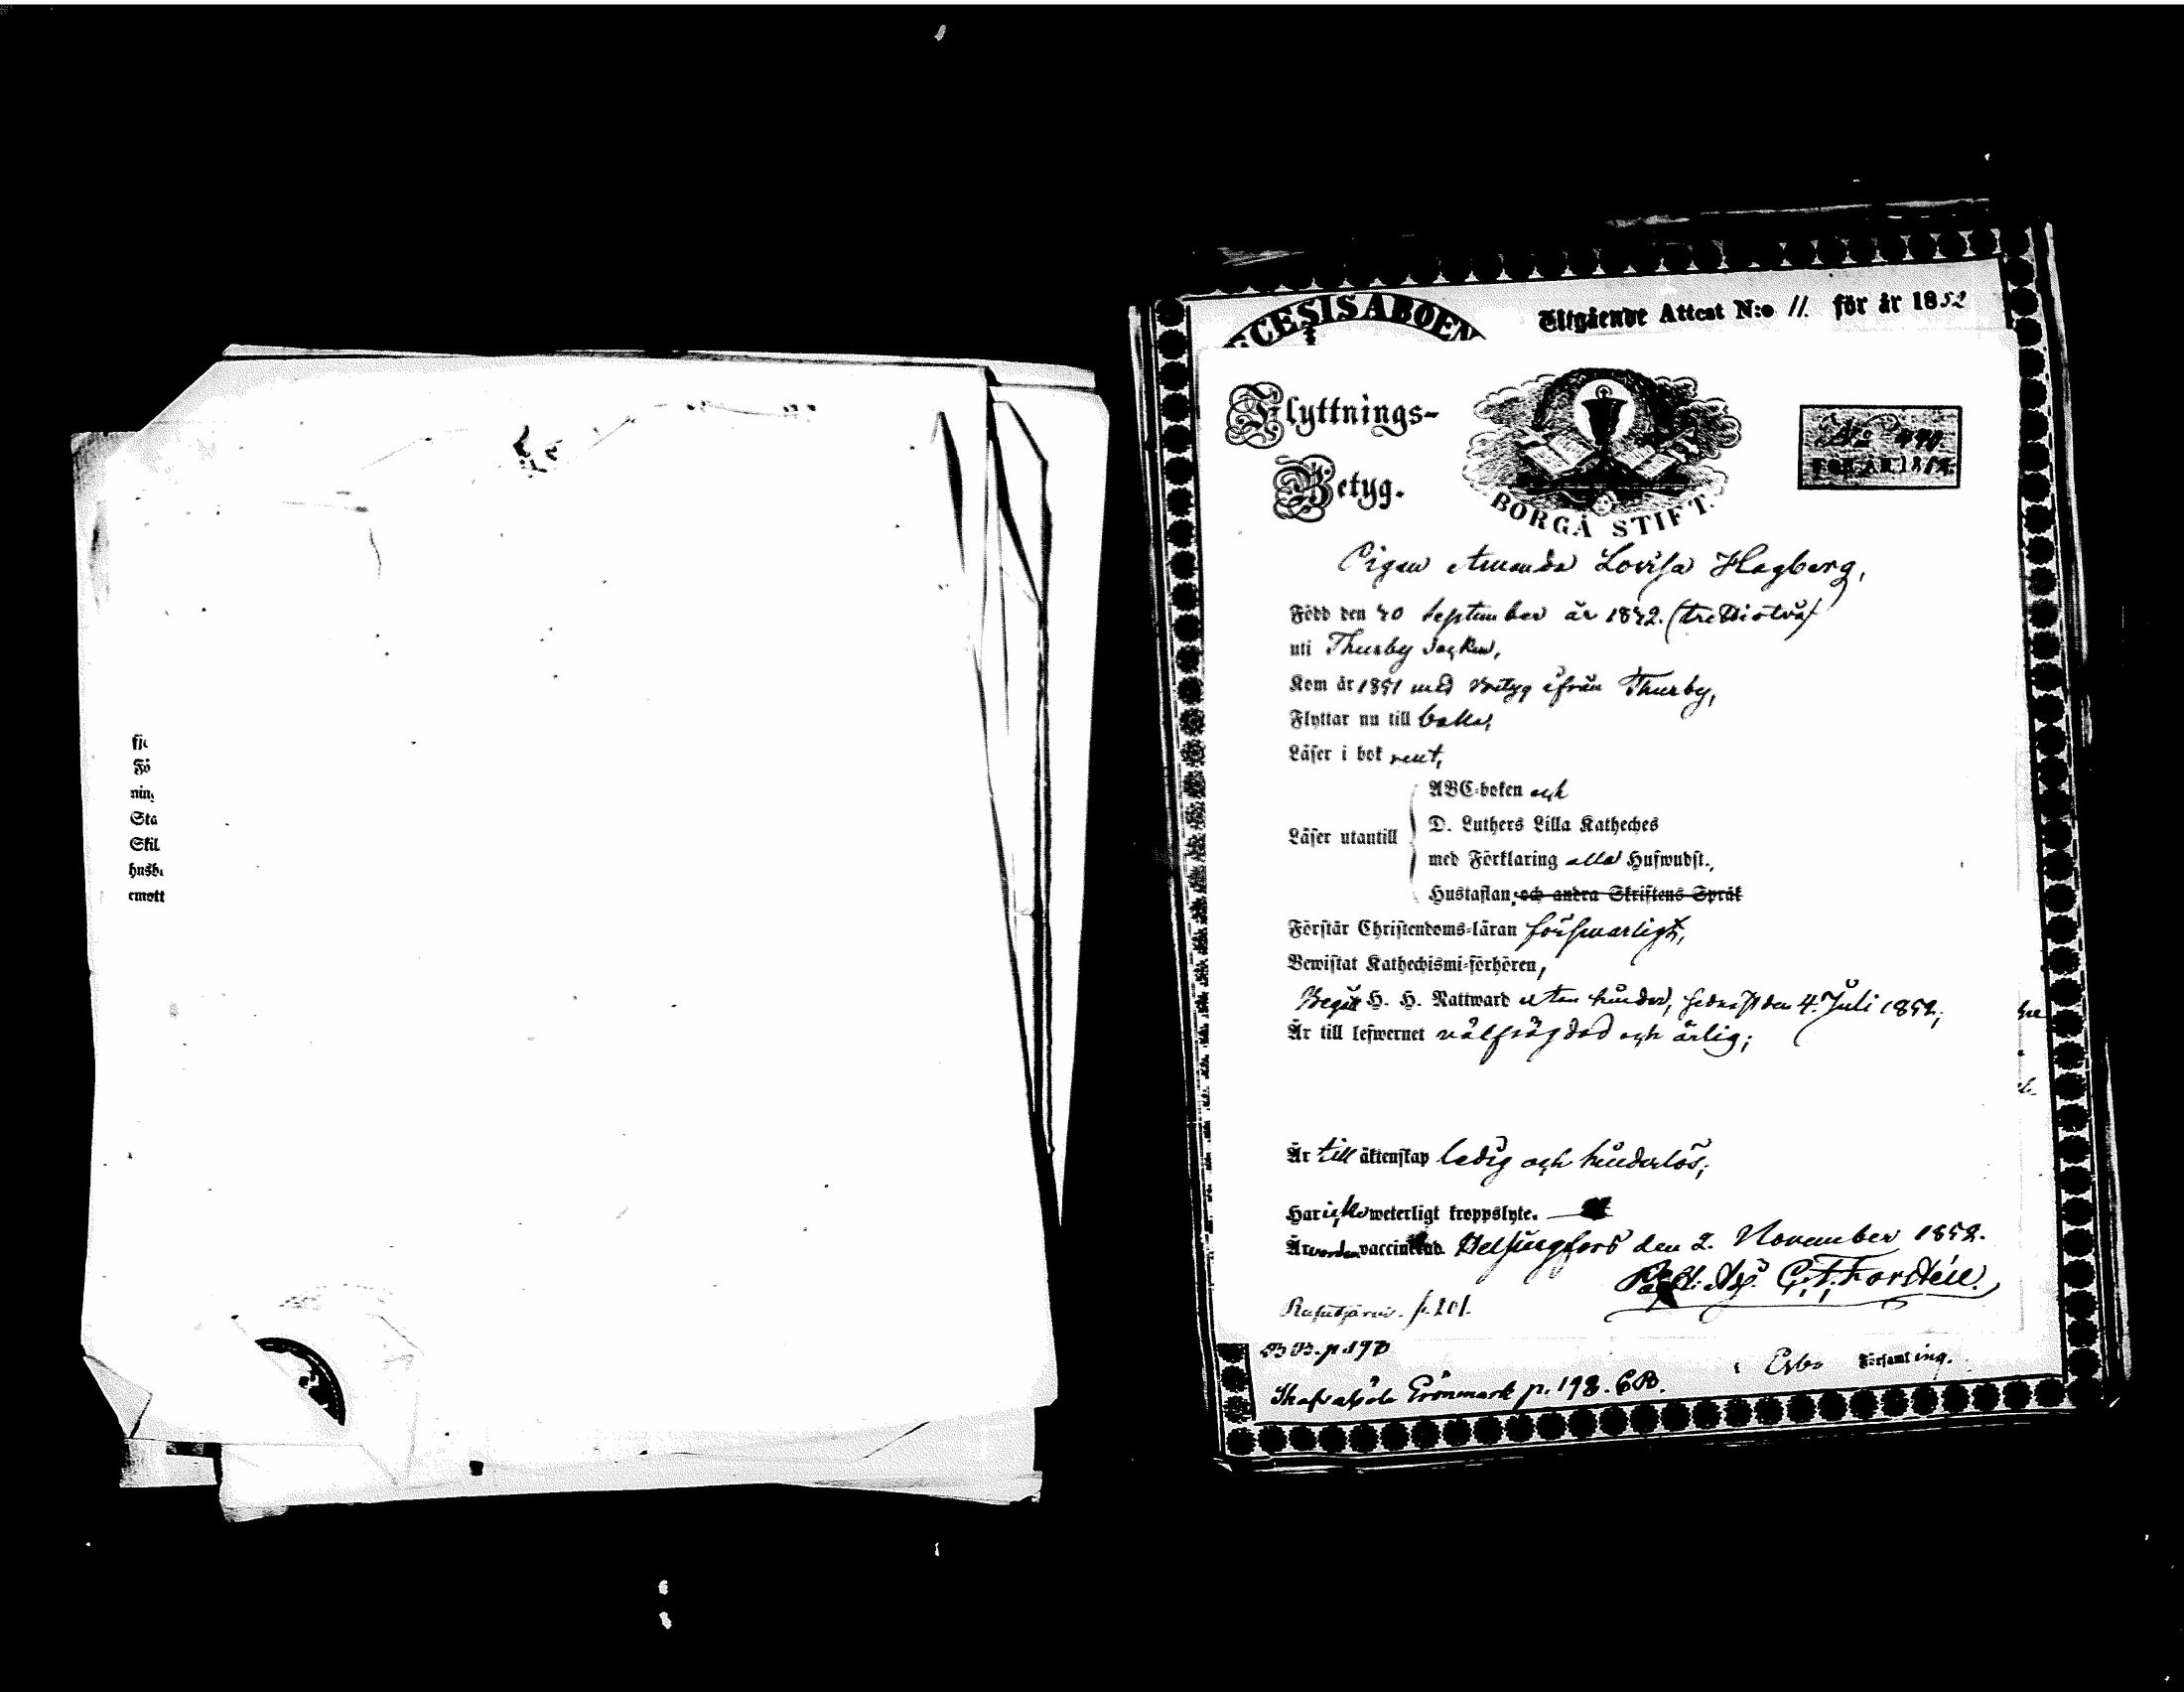 fje
Fö
ning
Sta
Skil
husb
emott
ŒCESIS ABOEN
Utgående Attest N:o 11. för år 1852
Flyttnings-
Betyg.
BORGÅ STIFT.
No 490.
FÖR ÅR 1852.
Pigan Amanda Lovisa Hagberg,
Född den 20 September år 1832. (trettiotvå)
uti Thusby socken,
Kom år 1851 med betyg ifrån Thusby,
Flyttar nu till baka,
Läser i bok rent,
ABC-boken och
Läser utantill D. Luthers Lilla Katheches
med Förklaring alla Hufwudst.,
Hustaflan, och andra Skriftens Språk
Förstår Christendoms-läran försvarligt,
Bewistat Kathechismi-förhören,
Begår H. H. Nattward utan hinder, sednast den 4. Juli 1852;
Är till lefwernet välfrägdad och ärlig;
Är till äktenskap ledig och hinderlös;
Har icke weterligt kroppslyte.
Är worden vaccinerad. Helsingfors den 2. November 1852.
Past: Adj: G. A. Forstén.
p. 201.
p. 197
i Esbo Församling.
Grönmark p. 198. CB.